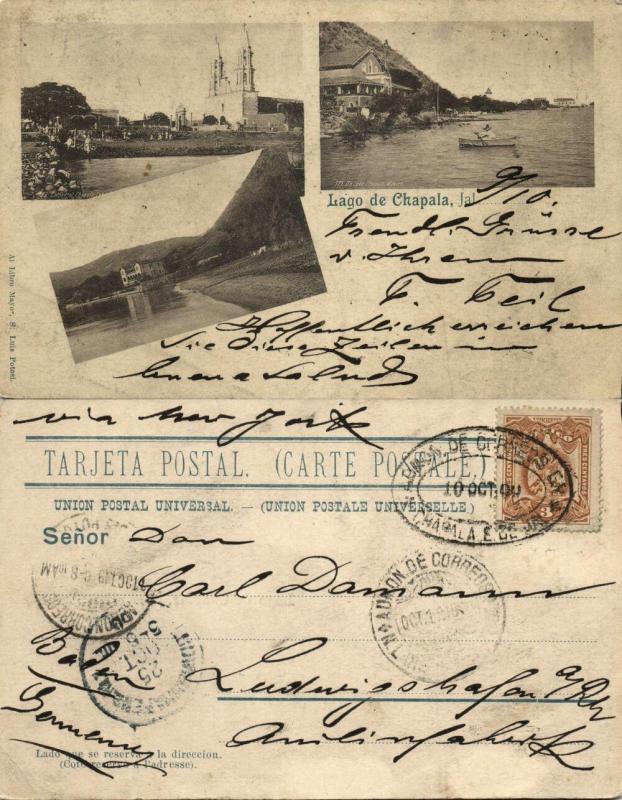 Lago de Chapala, Jal.
9/10.
Frendl. Grüsse
v. Ihrem
F. Teil
Hoffentlich erreichen
Sie diese Zeilen in
buena salud
Al Libro Mayor, S. Luis Potosi.
via New York
TARJETA POSTAL. (CARTE POSTALE.)
UNION POSTAL UNIVERSAL. - (UNION POSTALE UNIVERSELLE.)
10 OCT. 00
CHAPALA E. DE JAL
Señor Don
Carl Damann
Ludwigshafen a/Rh
Anilinfabrik
Baden
Germany
ADMON DE CORREOS
OCT. 25
Lado que se reserva a la direccion.
(Coté reservé à l'adresse).